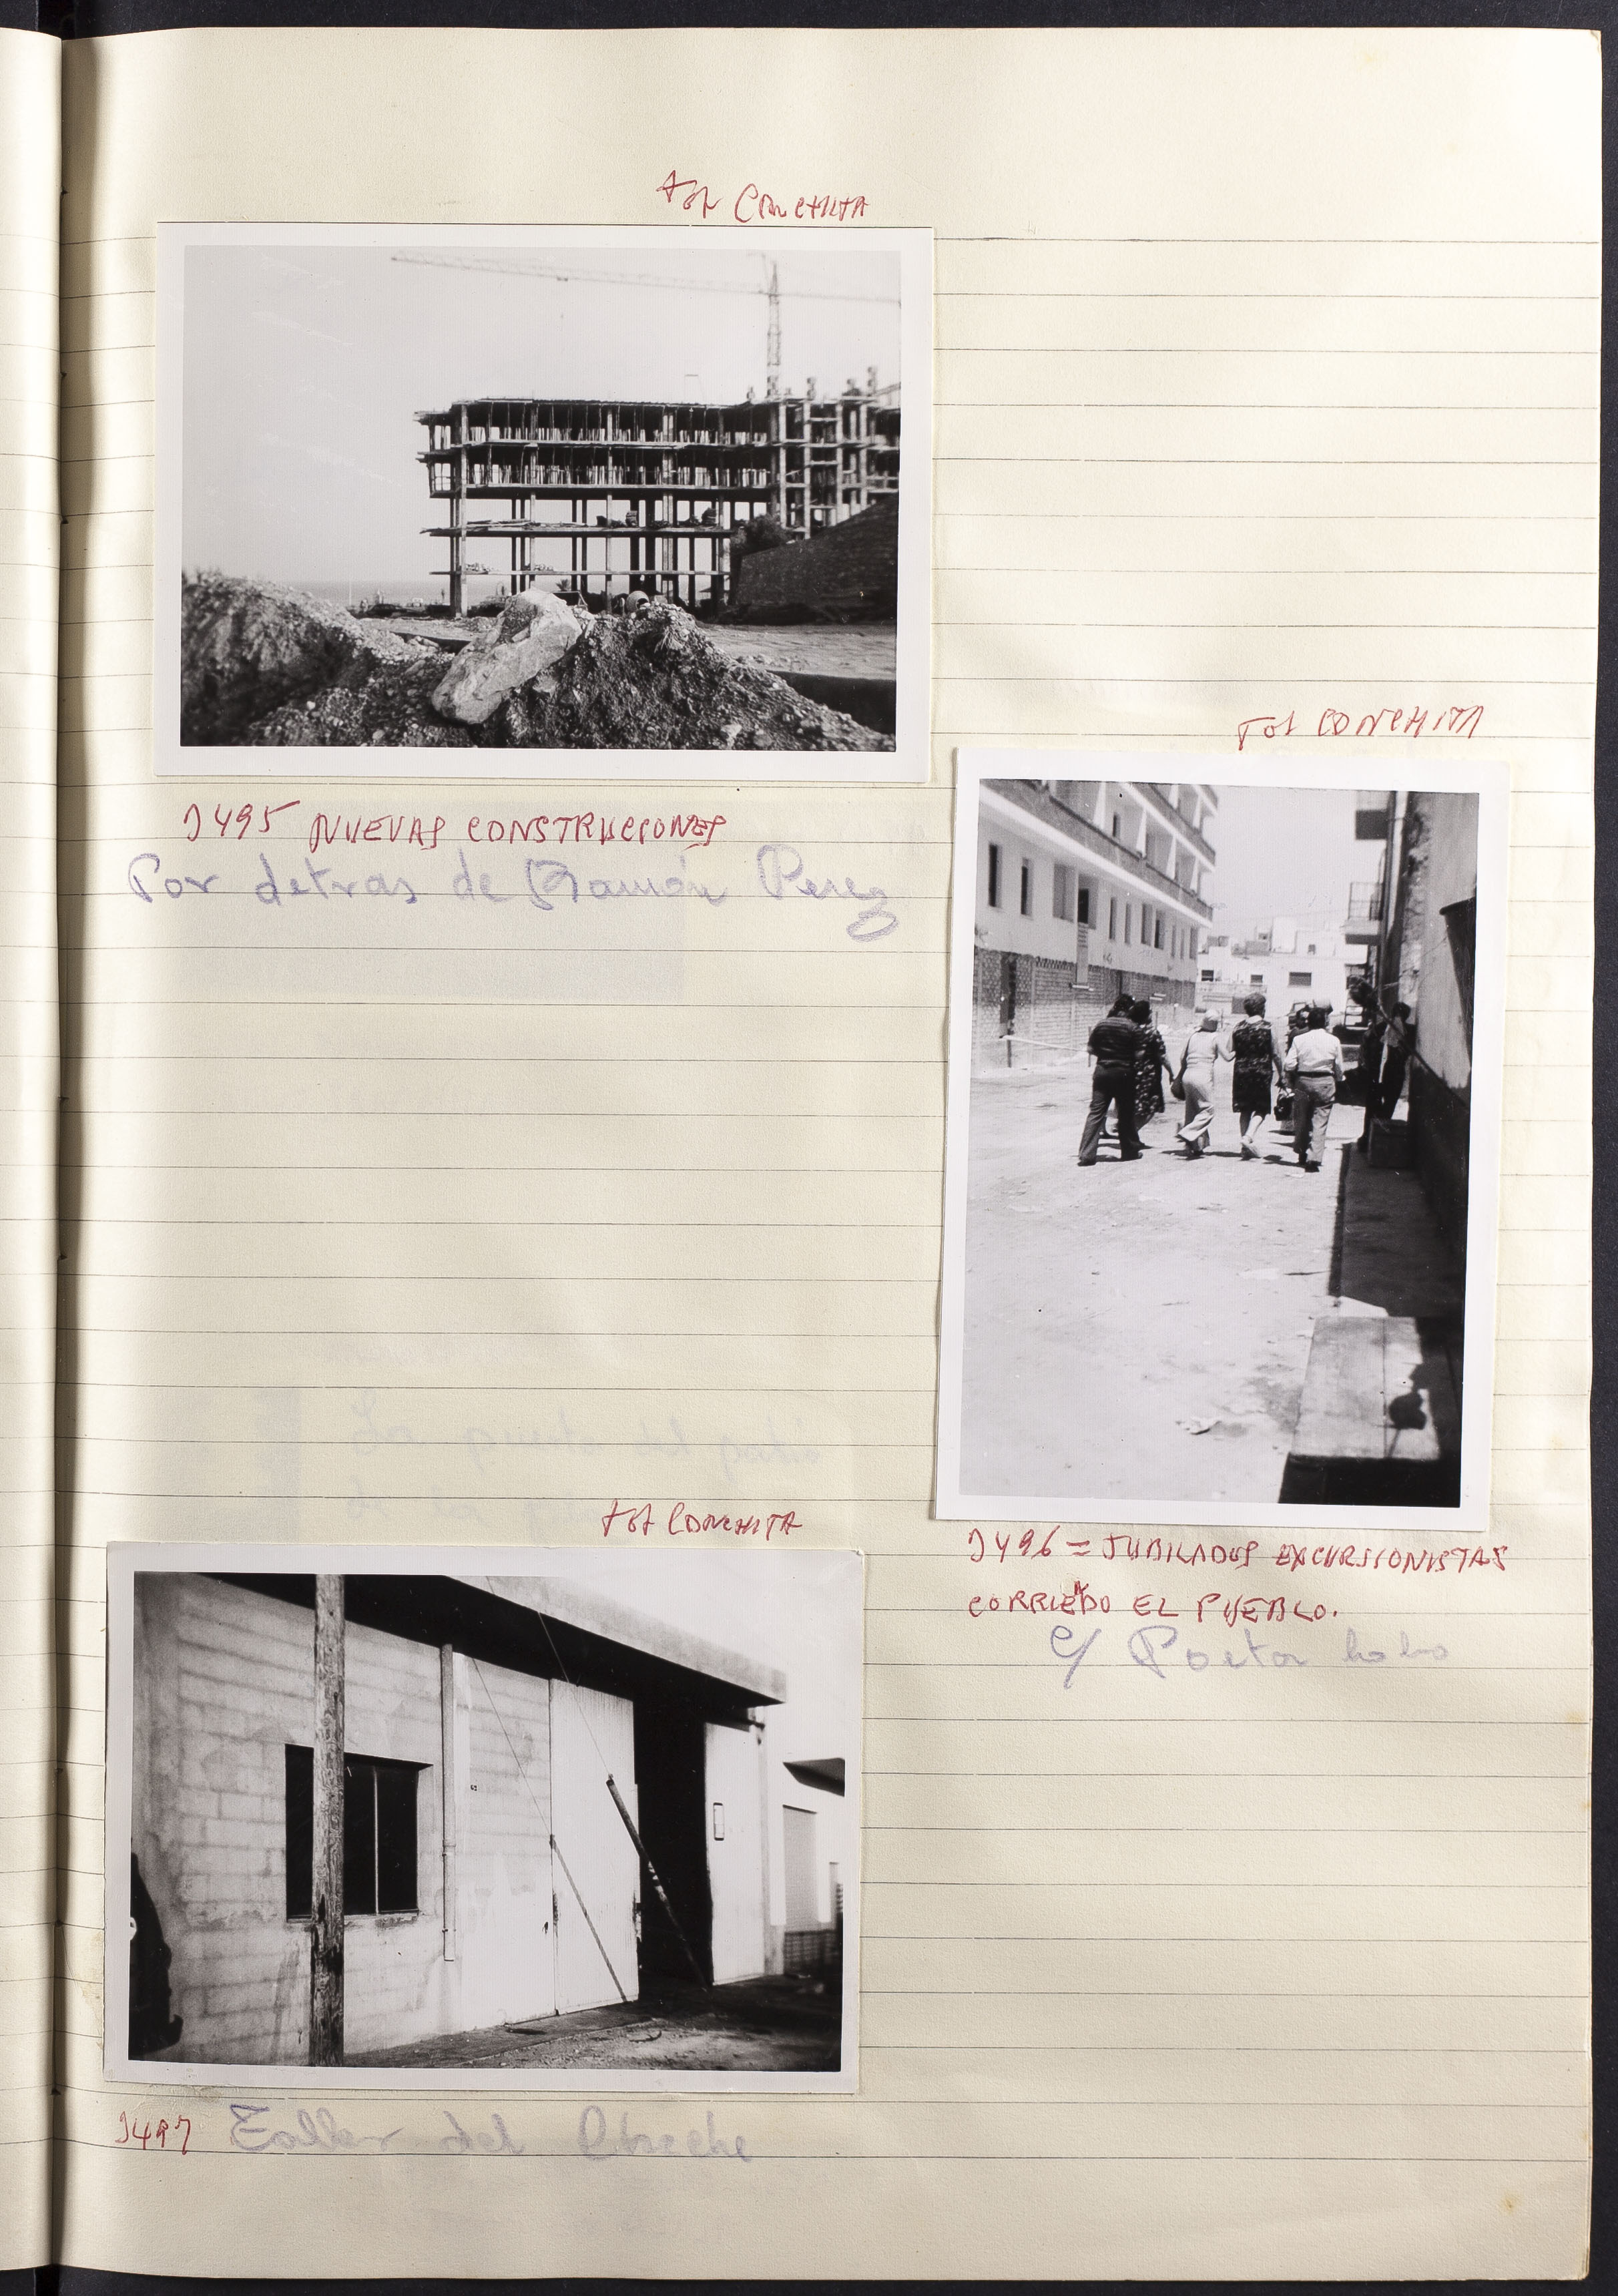 Fot CONCHITA
J495 NUEVAS CONSTRUCCIONES
Por detras de Ramón Perez
Fot CONCHITA
J496 = JUBILADOS EXCURSIONISTAS
CORRIENDO EL PUEBLO.
C/ Pastor
Fot CONCHITA
J497 Taller del